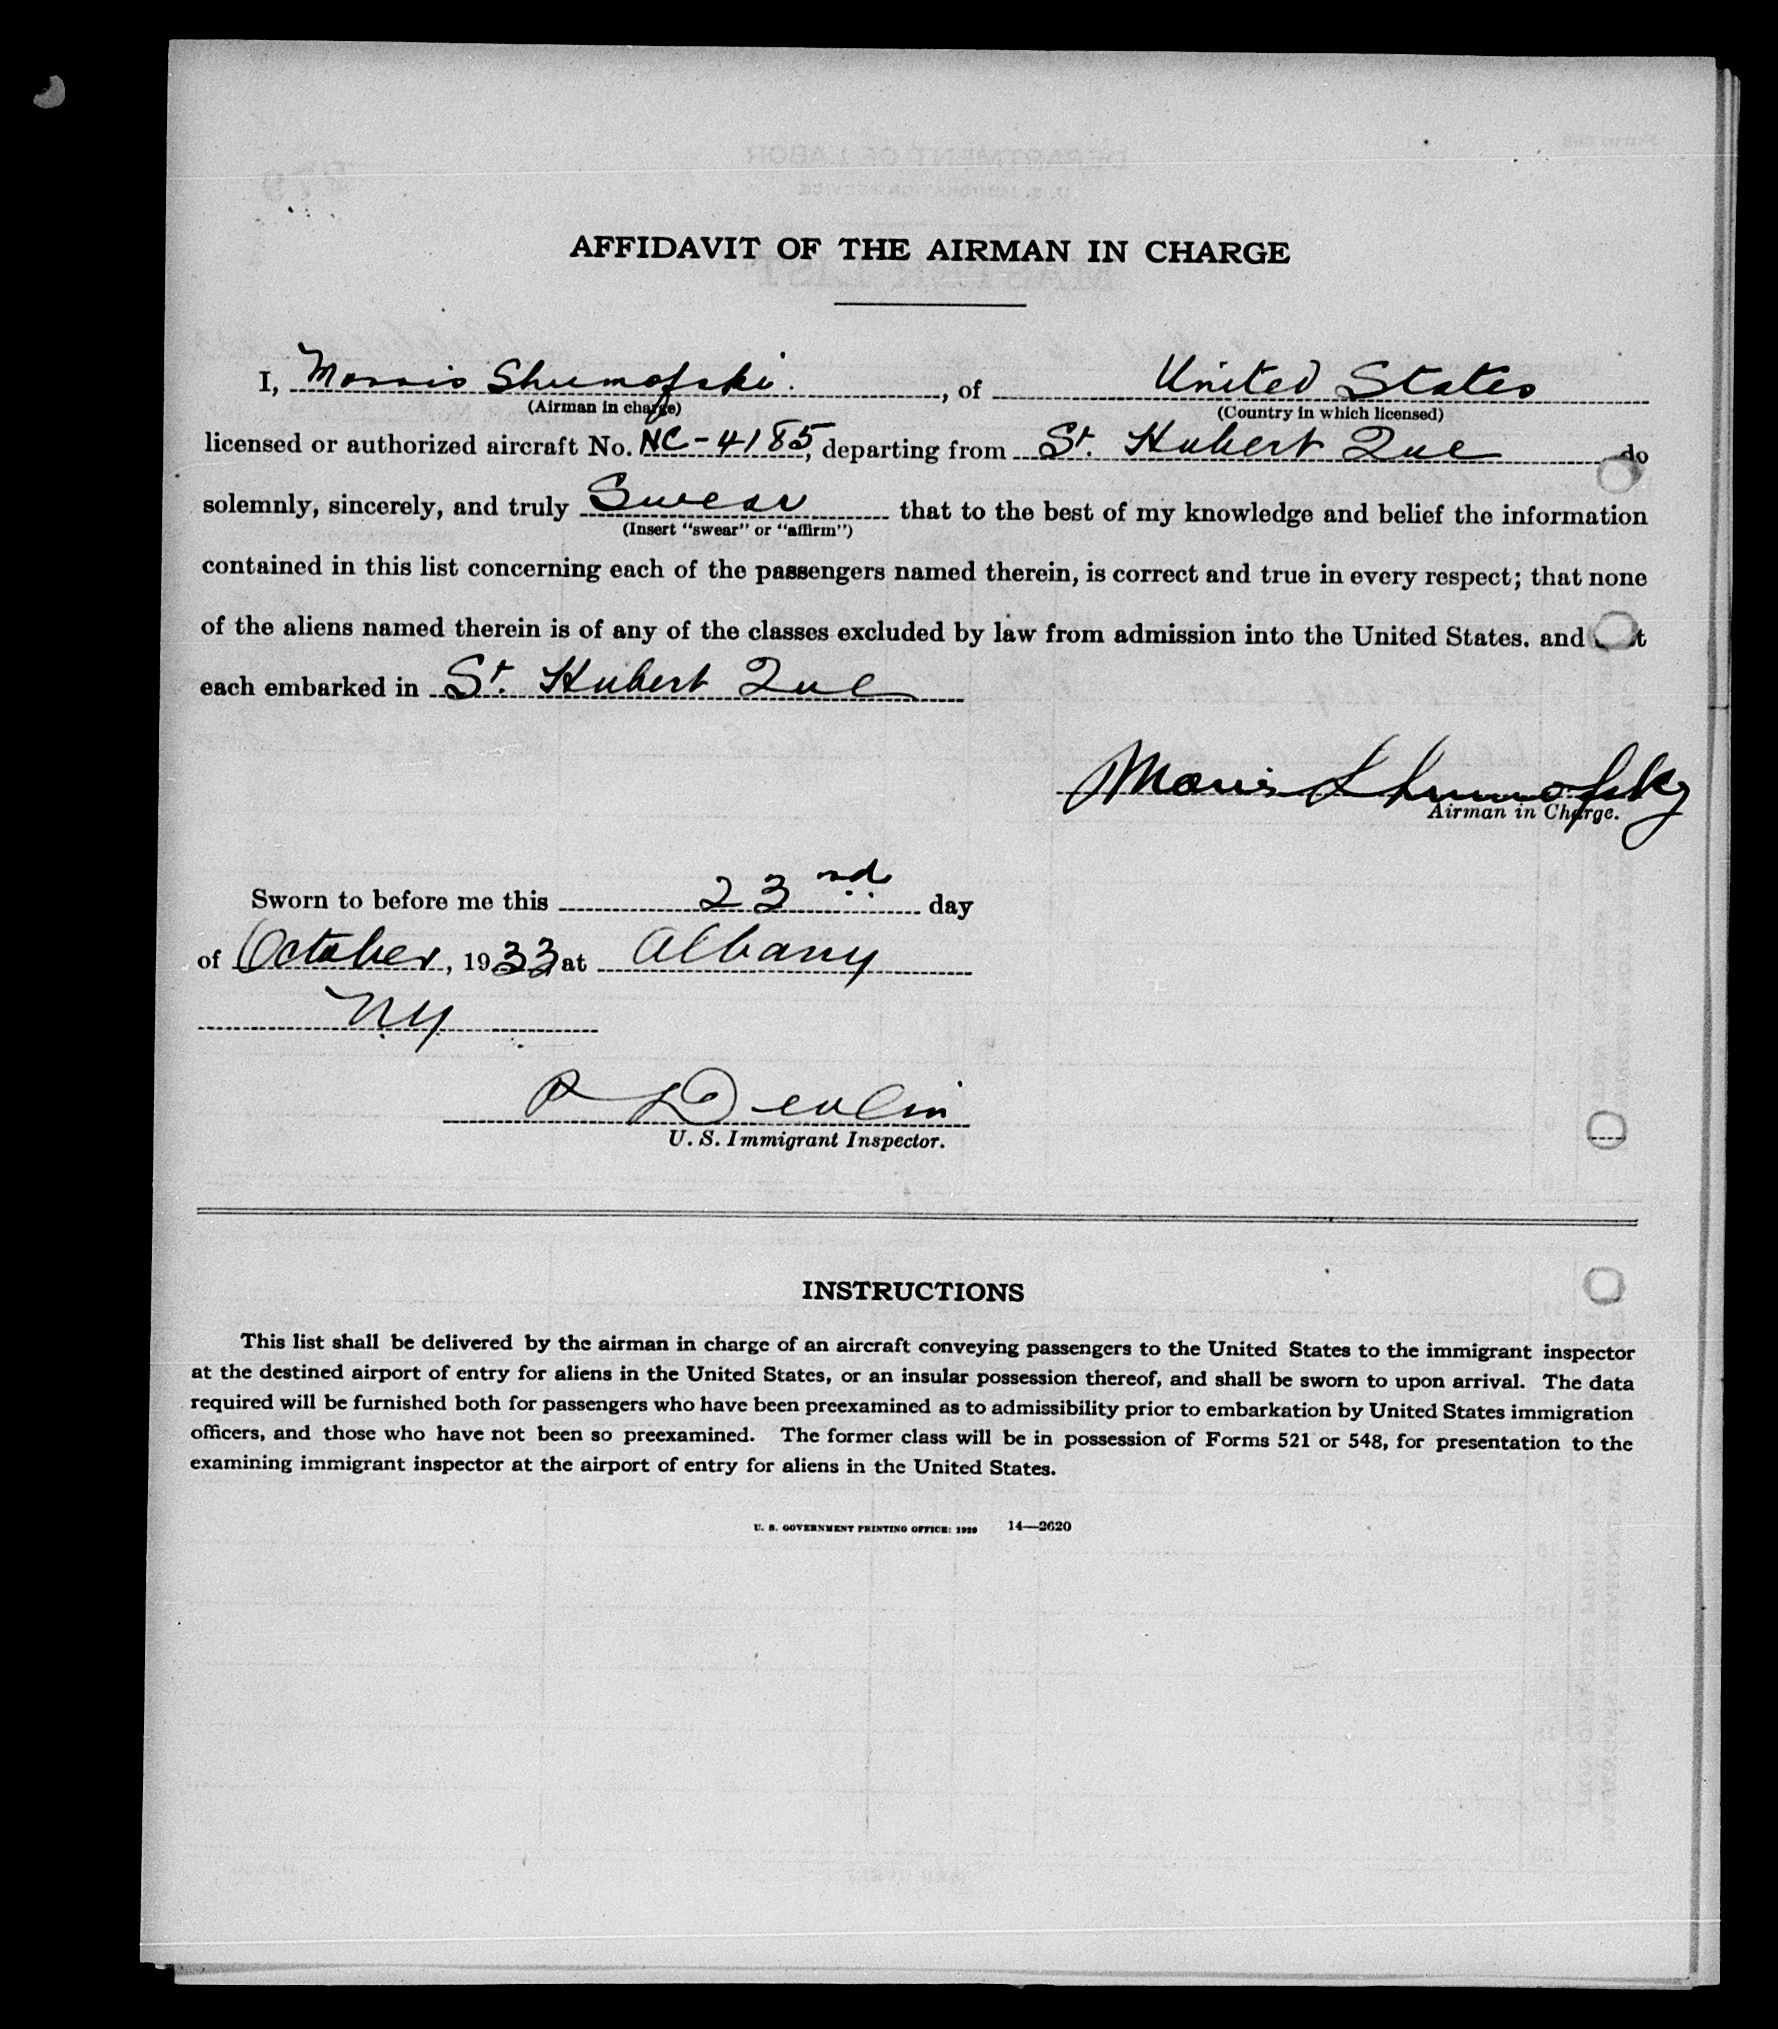 AFFIDAVIT OF THE AIRMAN IN CHARGE
I, Morris Shumofski. , of United States
(Airman in charge) (Country in which licensed)
licensed or authorized aircraft No. NC-4185, departing from St. Hubert Que do
solemnly, sincerely, and truly Swear that to the best of my knowledge and belief the information
(Insert "swear" or "affirm")
contained in this list concerning each of the passengers named therein, is correct and true in every respect; that none
of the aliens named therein is of any of the classes excluded by law from admission into the United States. and
each embarked in St. Hubert Que
Morris Shumofsky
Airman in Charge.
Sworn to before me this 23nd day
of October, 1933 at Albany
N.Y.
Devlin
U. S. Immigrant Inspector.
INSTRUCTIONS
This list shall be delivered by the airman in charge of an aircraft conveying passengers to the United States to the immigrant inspector
at the destined airport of entry for aliens in the United States, or an insular possession thereof, and shall be sworn to upon arrival. The data
required will be furnished both for passengers who have been preexamined as to admissibility prior to embarkation by United States immigration
officers, and those who have not been so preexamined. The former class will be in possession of Forms 521 or 548, for presentation to the
examining immigrant inspector at the airport of entry for aliens in the United States.
U. S. GOVERNMENT PRINTING OFFICE: 1929 14—2620